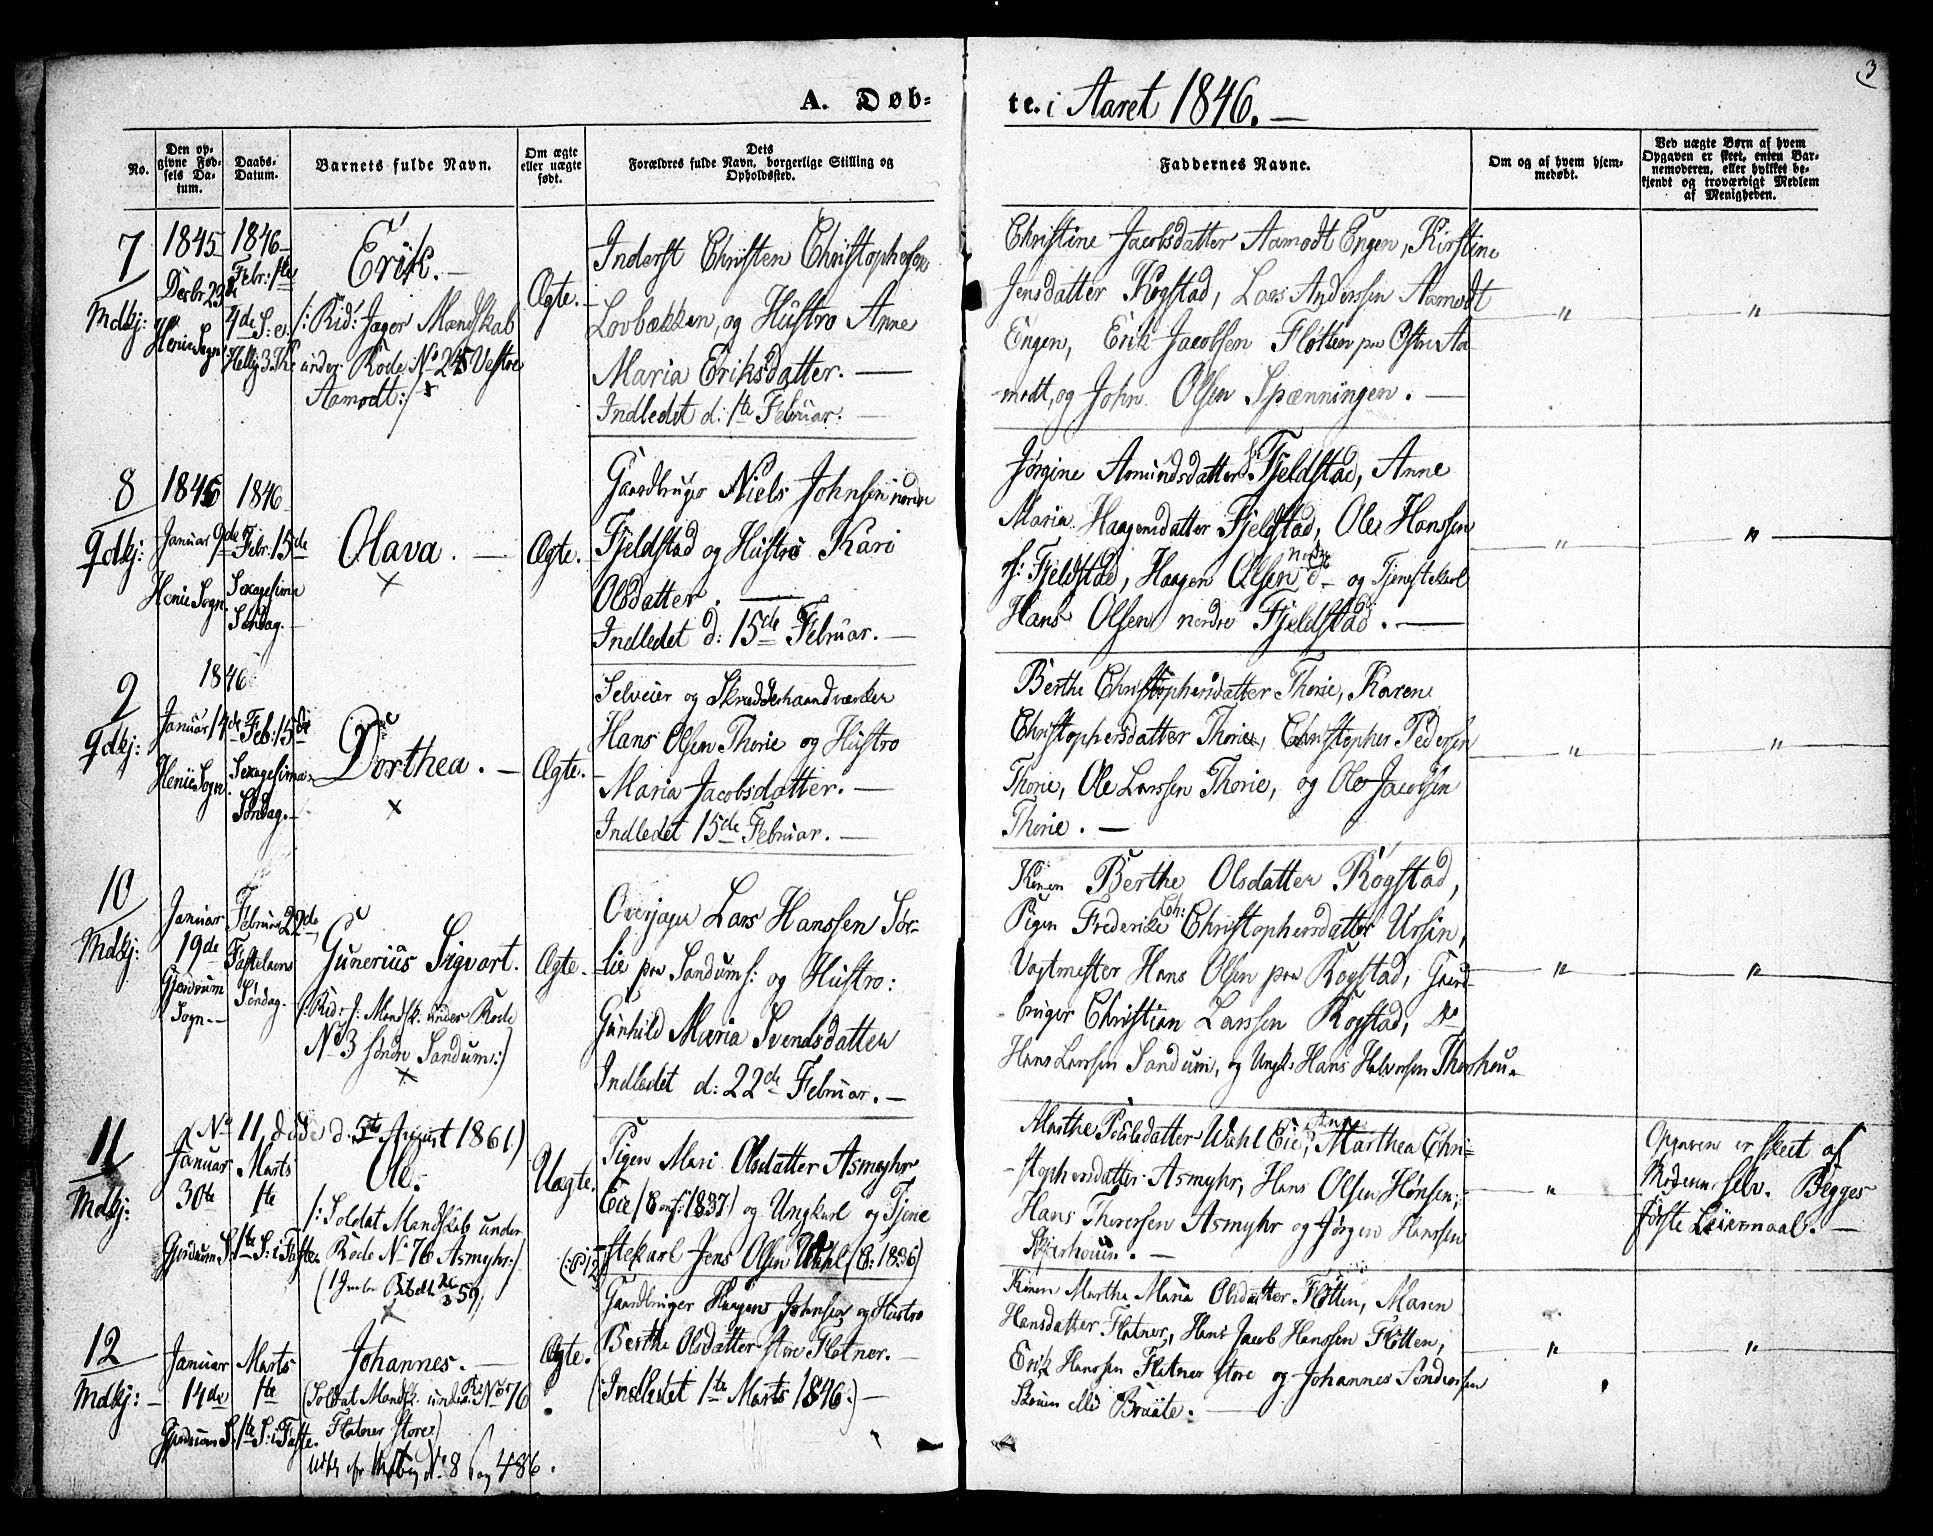 3
A. Døb-
te. i Aaret 1846. —
No.
Den op-
givne Fød-
sels Da-
tum.
Daabs-
Datum.
Barnets fulde Navn.
Om ægte
eller uægte
født.
Dets
Forældres fulde Navn, borgerlige Stilling og
Opholdssted.
Faddernes Navne.
Om og af hvem hjem-
medøbt.
Ved uægte Børn af hvem
Opgaven er skeet, enten Bar-
nemoderen, eller hvilket be-
kjendt og troværdigt Medlem
af Menigheden.
7
Mdkj:
1845
Decbr 23de
Henie Sogn
1846
Febr: 1ste
4de S: e:
Hellig 3. K.
Erik. —
/: Rid: Jæger Mandskab
under Rode No 245 Vestre
Aamodt :/
Ægte. —
Inderst Christen Christophersen
Lovbækken, og Hustro Anne
Maria Eriksdatter. —
Indledet d: 1ste Februar. —
Christine Jacobsdatter Aamodt Engen, Kirstine
Jensdatter Kogstad, Lars Anderssen Aamodt
Engen, Erik Jacobsen Fløtten paa Østre Aa-
modt, og John Olsen Spænningen. —
"
"
8
Qdkj:
1846
Januar 9de
Henie Sogn
1846
Febr. 15de
Sexagesima
Søndag. —
Olava. —
×
Ægte. —
Gaardbruger Niels Johnsen nordre
Fjeldstad og Hustro Kari
Olsdatter. —
Indledet d: 15de Februar. —
Jørgine Amundsdatter s: Fjeldstad, Anne
Maria Haagensdatter Fjeldstad, Ole Hanssen
s: Fjeldstad, Haagen Olsen nordre do og Tjenestekarl
Hans Olsen nordre Fjeldstad. —
"
"
9
Qdkj:
1846
Januar 14de
Henie Sogn
Feb: 15de
Sexagesima
Søndag. —
Dorthea. —
×
Ægte. —
Selveier og Skrædderhaandværker
Hans Olsen Thorie og Hustro
Maria Jacobsdatter. —
Indledet 15de Februar. —
Berthe Christophersdatter Thorie, Karen
Christophersdatter Thorie, Christopher Pedersen
Thorie, Ole Larssen Thorie, og Ole Jacobsen
Thorie. —
"
"
10
Mdkj:
Januar
19de
Gjerdrum
Sogn. —
Februar 22de
Fastelavns
Søndag. —
Gunerius Sigvart.
/: Rid: J: Mandsk: under Rode
No 3 søndr Sandum :/
×
Ægte. —
Overjæger Lars Hanssen Sør-
lie paa Sandum s: og Hustro:
Gunhild Maria Svendsdatter
Indledet d: 22de Februar. —
Konen Berthe Olsdatter Kogstad,
Pigen Frederike Ch: Christophersdatter Ursin,
Vagtmester Hans Olsen paa Kogstad, Gaard-
bruger Christian Larssen Kogstad, Do
Hans Larssen Sandum, og Ungk: Hans Halvorsen Thorshou.
"
"
11
Mdkj:
No 11. døde d. 5te August 1861.)
Januar
30te
Gjerdrum S:
Marts
1ste
1ste S: i Faste.
Ole.
/: Soldat Mandskab under
Rode No 76 Asmyhr :/
×
Uægte.
Pigen Mari Olsdatter Asmyhr
Eie / Conf: 1837 / og Ungkarl og Tjene-
stekarl Jens Olsen Wahl (C: 1836)
Marthe Poulsdatter Wahl Eie, Anne Marthea Chri-
stophersdatter Asmyhr, Hans Olsen Hønsen,
Hans Thoressen Asmyhr og Jørgen Hanssen
"
Opgaven er skeet af
Moderen selv. Begges
første Leiermaal. —
12
Mdkj: —
Januar
14de
Gjerdrum S:
Marts
1ste
1ste S: i Faste.
Johannes. —
(Soldat Mandsk. under Ro No 76
Flatner store)
Ægte.
Gaardbruger Haagen Johnsen og Hustro
Berthe Olsdatter store Flatner. —
(Indledet 1ste Marts 1846.) —
Konen Marthe Maria Olsdatter Fløtten, Maren
Hansdatter Flatner, Hans Jacob Hanssen Fløtten,
Erik Hanssen Flatner store og Johannes Andersen
Braate. —
"
"